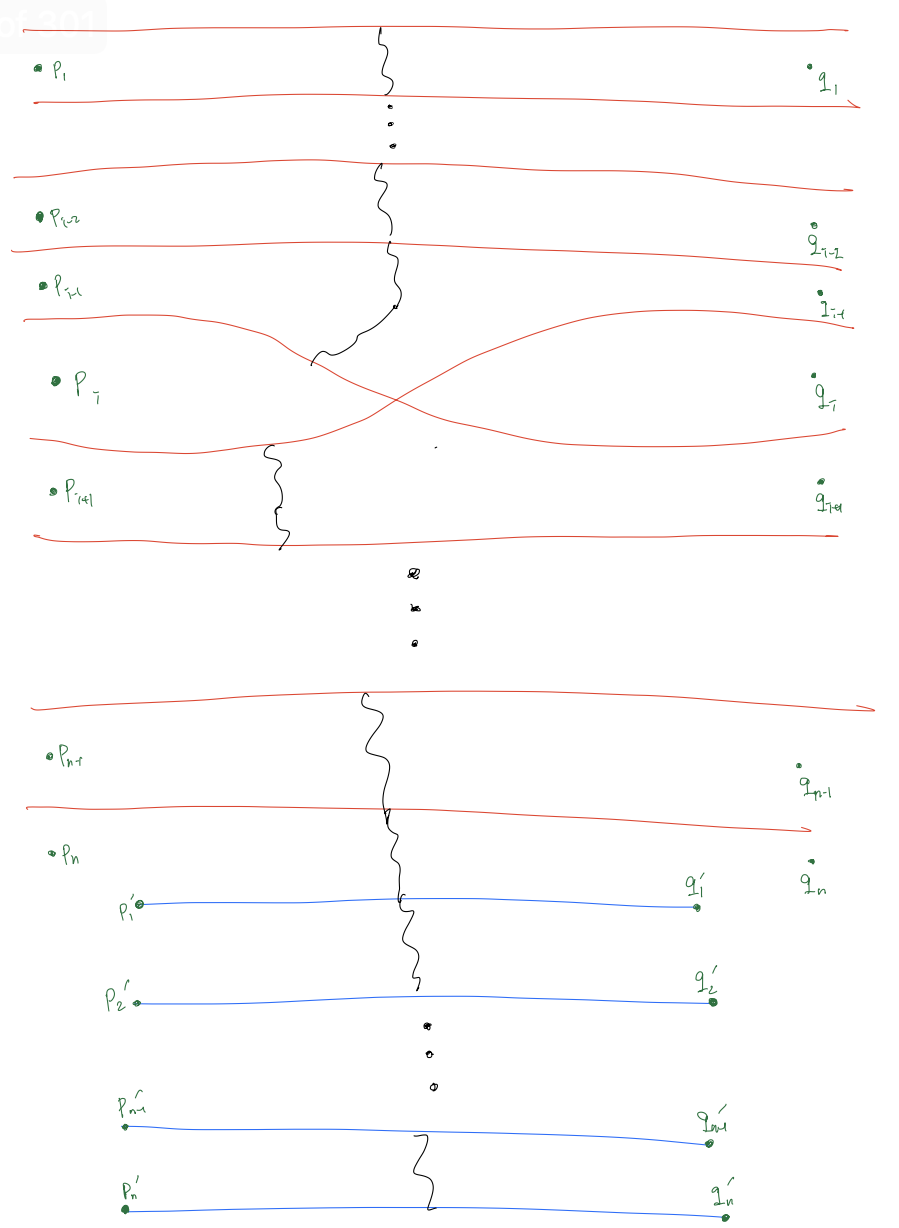 of 301
p₁ q₁
pᵢ₋₂ qᵢ₋₂
pᵢ₋₁ qᵢ₋₁
pᵢ qᵢ
pᵢ₊₁ qᵢ₊₁
pₙ₋₁ qₙ₋₁
pₙ qₙ
p₁′ q₁′
p₂′ q₂′
pₙ₋₁′ qₙ₋₁′
pₙ′ qₙ′